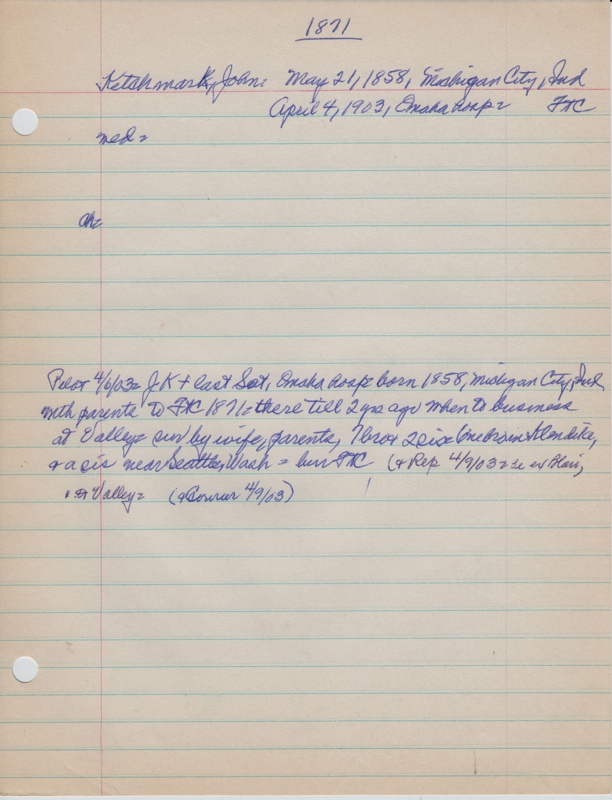 1871
Ketchmark, John: May 21, 1858, Michigan City, Ind
April 4, 1903, Omaha hosp= FtC
med=
ch=
Pilot 4/6/03= J K + last Sat, Omaha hosp= born 1858, Michigan City, Ind
with parents to FtC 1871= there till 2 yrs ago when to business
at Valley= sur by wife, parents, 7 bro + 2 sis (one bro in Klondike,
+ a sis near Seattle, Wash = bur FtC (+ Rep 4/9/03=
Valley= (+ Courier 4/9/03)